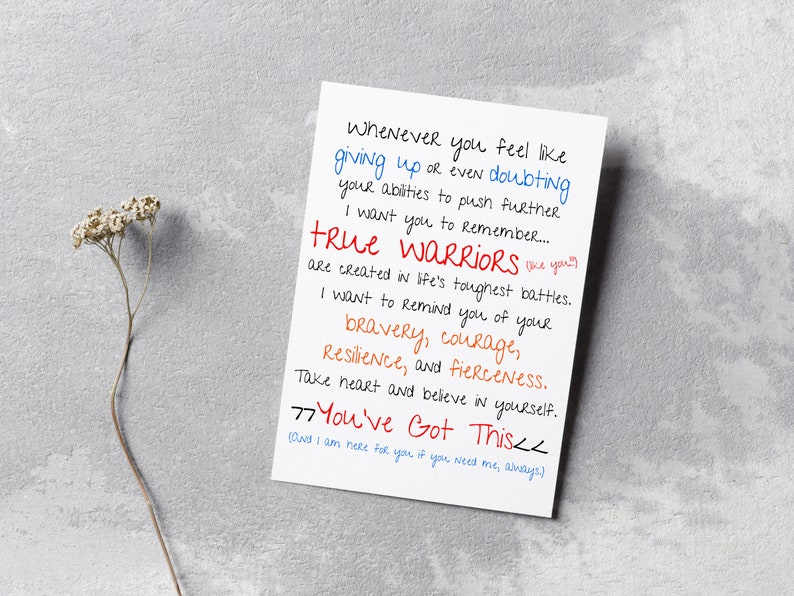 Whenever you feel like
giving up or even doubting
your abilities to push further
I want you to remember...
true warriors (like you!!!)
are created in life's toughest battles.
I want to remind you of your
bravery, courage,
resilience, and fierceness.
Take heart and believe in yourself.
>>You've Got This<<
(And I am here for you if you need me, always.)